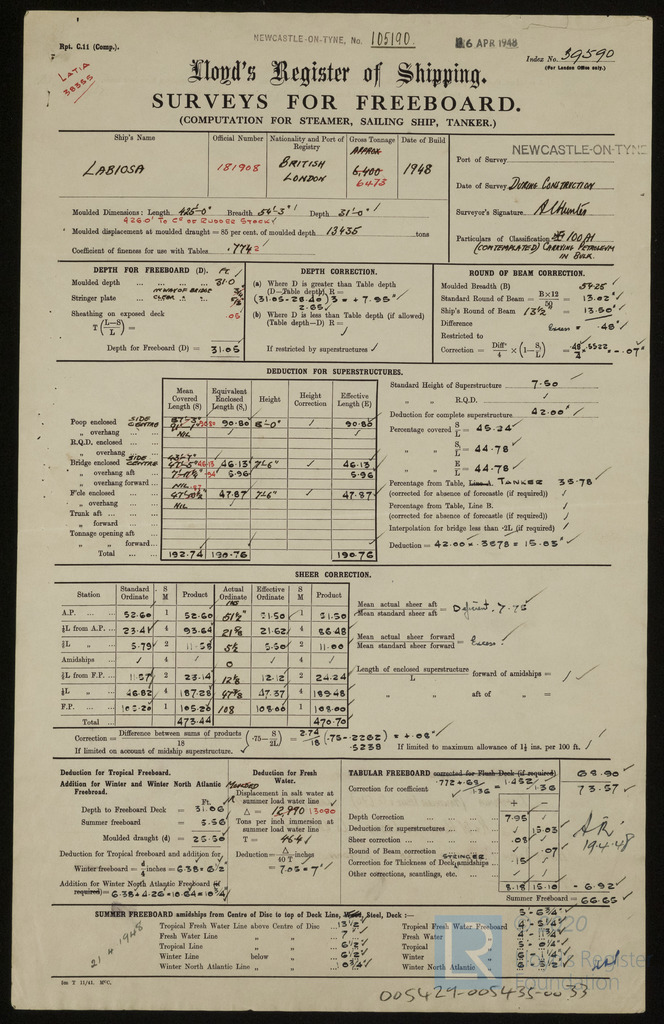 Rpt. C.11 (Comp.).
NEWCASTLE-ON-TYNE, No. 105190
6 APR 1948
Index No. 39590
(For London Office only.)
LATIA
38365
Lloyd's Register of Shipping.
SURVEYS FOR FREEBOARD.
(COMPUTATION FOR STEAMER, SAILING SHIP, TANKER.)
Ship's Name Official Number Nationality and Port of Registry Gross Tonnage Date of Build
LABIOSA 181908 BRITISH LONDON APPROX 6,400 6473 1948
Port of Survey NEWCASTLE-ON-TYNE
Date of Survey DURING CONSTRUCTION
Surveyor's Signature A. Hunter
Particulars of Classification 100 A1
(CONTEMPLATED) CARRYING PETROLEUM IN BULK.
Moulded Dimensions: Length 425'-0" Breadth 54'-3" Depth 31'-0"
426.0' TO CR OF RUDDER STOCK
Moulded displacement at moulded draught = 85 per cent. of moulded depth 13435 tons
Coefficient of fineness for use with Tables .7742
DEPTH FOR FREEBOARD (D).
Moulded depth 31.0
Stringer plate
Sheathing on exposed deck .05
T (L-S/L) =
Depth for Freeboard (D) = 31.05
DEPTH CORRECTION.
(a) Where D is greater than Table depth
(D—Table depth) R =
(31.05-28.40) 3 = + 7.95"
2.65
(b) Where D is less than Table depth (if allowed)
(Table depth—D) R =
If restricted by superstructures
ROUND OF BEAM CORRECTION.
Moulded Breadth (B) 54.25
Standard Round of Beam = B×12/50 = 13.02"
Ship's Round of Beam 13½" = 13.50"
Difference Excess = .48"
Restricted to
Correction = Diff/4 × (1-S/L) = .48/4 × .5522 = -.07"
DEDUCTION FOR SUPERSTRUCTURES.
Mean Covered Length (S) Equivalent Enclosed Length (S₁) Height Height Correction Effective Length (E)
Poop enclosed SIDE CENTRE 90.80 8'-0" 90.80
„ overhang NIL
R.Q.D. enclosed
„ overhang
Bridge enclosed SIDE CENTRE 46.13 7'-6" 46.13
„ overhang aft 5.96 5.96
„ overhang forward NIL
F'cle enclosed 47.87 7'-6" 47.87
„ overhang NIL
Trunk aft
„ forward
Tonnage opening aft
„ „ forward
Total 192.74 190.76 190.76
Standard Height of Superstructure 7.50
„ „ R.Q.D.
Deduction for complete superstructure 42.00"
Percentage covered S/L = 45.24
„ „ S₁/L = 44.78
„ „ E/L = 44.78
Percentage from Table, Line A. TANKER 35.78
(corrected for absence of forecastle (if required))
Percentage from Table, Line B.
(corrected for absence of forecastle (if required))
Interpolation for bridge less than ·2L (if required)
Deduction = 42.00 × .3578 = 15.03"
SHEER CORRECTION.
Station Standard Ordinate S M Product Actual Ordinate Effective Ordinate S M Product
A.P. 52.60 1 52.60 51½" 51.50 1 51.50
⅙L from A.P. 23.41 4 93.64 21⅝ 21.62 4 86.48
⅓L „ 5.79 2 11.58 5½ 5.50 2 11.00
Amidships 4 0 4
⅓L from F.P. 11.57 2 23.14 12⅛ 12.12 2 24.24
⅙L „ 46.82 4 187.28 47⅜ 47.37 4 189.48
F.P. 105.20 1 105.20 108 108.00 1 108.00
Total 473.44 470.70
Mean actual sheer aft / Mean standard sheer aft = Deficient
Mean actual sheer forward / Mean standard sheer forward = Excess
Length of enclosed superstructure / L forward of amidships =
„ „ aft of „ =
Correction = Difference between sums of products / 18 (·75 - S/2L) = 2.74/18 (.75 - .2262) = + .08"
.5238
If limited on account of midship superstructure.
If limited to maximum allowance of 1½ ins. per 100 ft.
Deduction for Tropical Freeboard.
Addition for Winter and Winter North Atlantic Freeboard.
Ft.
Depth to Freeboard Deck = 31.06
Summer freeboard = 5.56
Moulded draught (d) = 25.50
Deduction for Tropical freeboard and addition for
Winter freeboard = d/4 inches = 6.38 = 6½
Addition for Winter North Atlantic Freeboard (if required) = 6.38 + 4.26 = 10.64 = 10¾
Deduction for Fresh Water.
Displacement in salt water at summer load water line
Δ = 12,990 13080
Tons per inch immersion at summer load water line
T = 46.4
Deduction = Δ/40 T inches
= 7.05 = 7"
TABULAR FREEBOARD corrected for Flush Deck (if required) 68.90
Correction for coefficient .772+.68/1.36 = 1.452/1.36 73.57
+ −
Depth Correction 7.95
Deduction for superstructures 15.03
Sheer correction .08
Round of Beam correction .07
Correction for Thickness of Deck amidships STRINGER .15
Other corrections, scantlings, etc.
8.18 15.10 - 6.92
Summer Freeboard = 66.65
19.4.48
SUMMER FREEBOARD amidships from Centre of Disc to top of Deck Line, Wood, Steel, Deck :— 5'-6¾"
Tropical Fresh Water Line above Centre of Disc 13½
Fresh Water Line „ „ 7
Tropical Line „ „ 6½
Winter Line below „ 6½
Winter North Atlantic Line „ „
Tropical Fresh Water Freeboard
Fresh Water „
Tropical „
Winter „
Winter North Atlantic „
21 4 1948
1m T 11/41. MᶜC.
© 2020
LR
Lloyd's Register
Foundation
005429-005435-0033